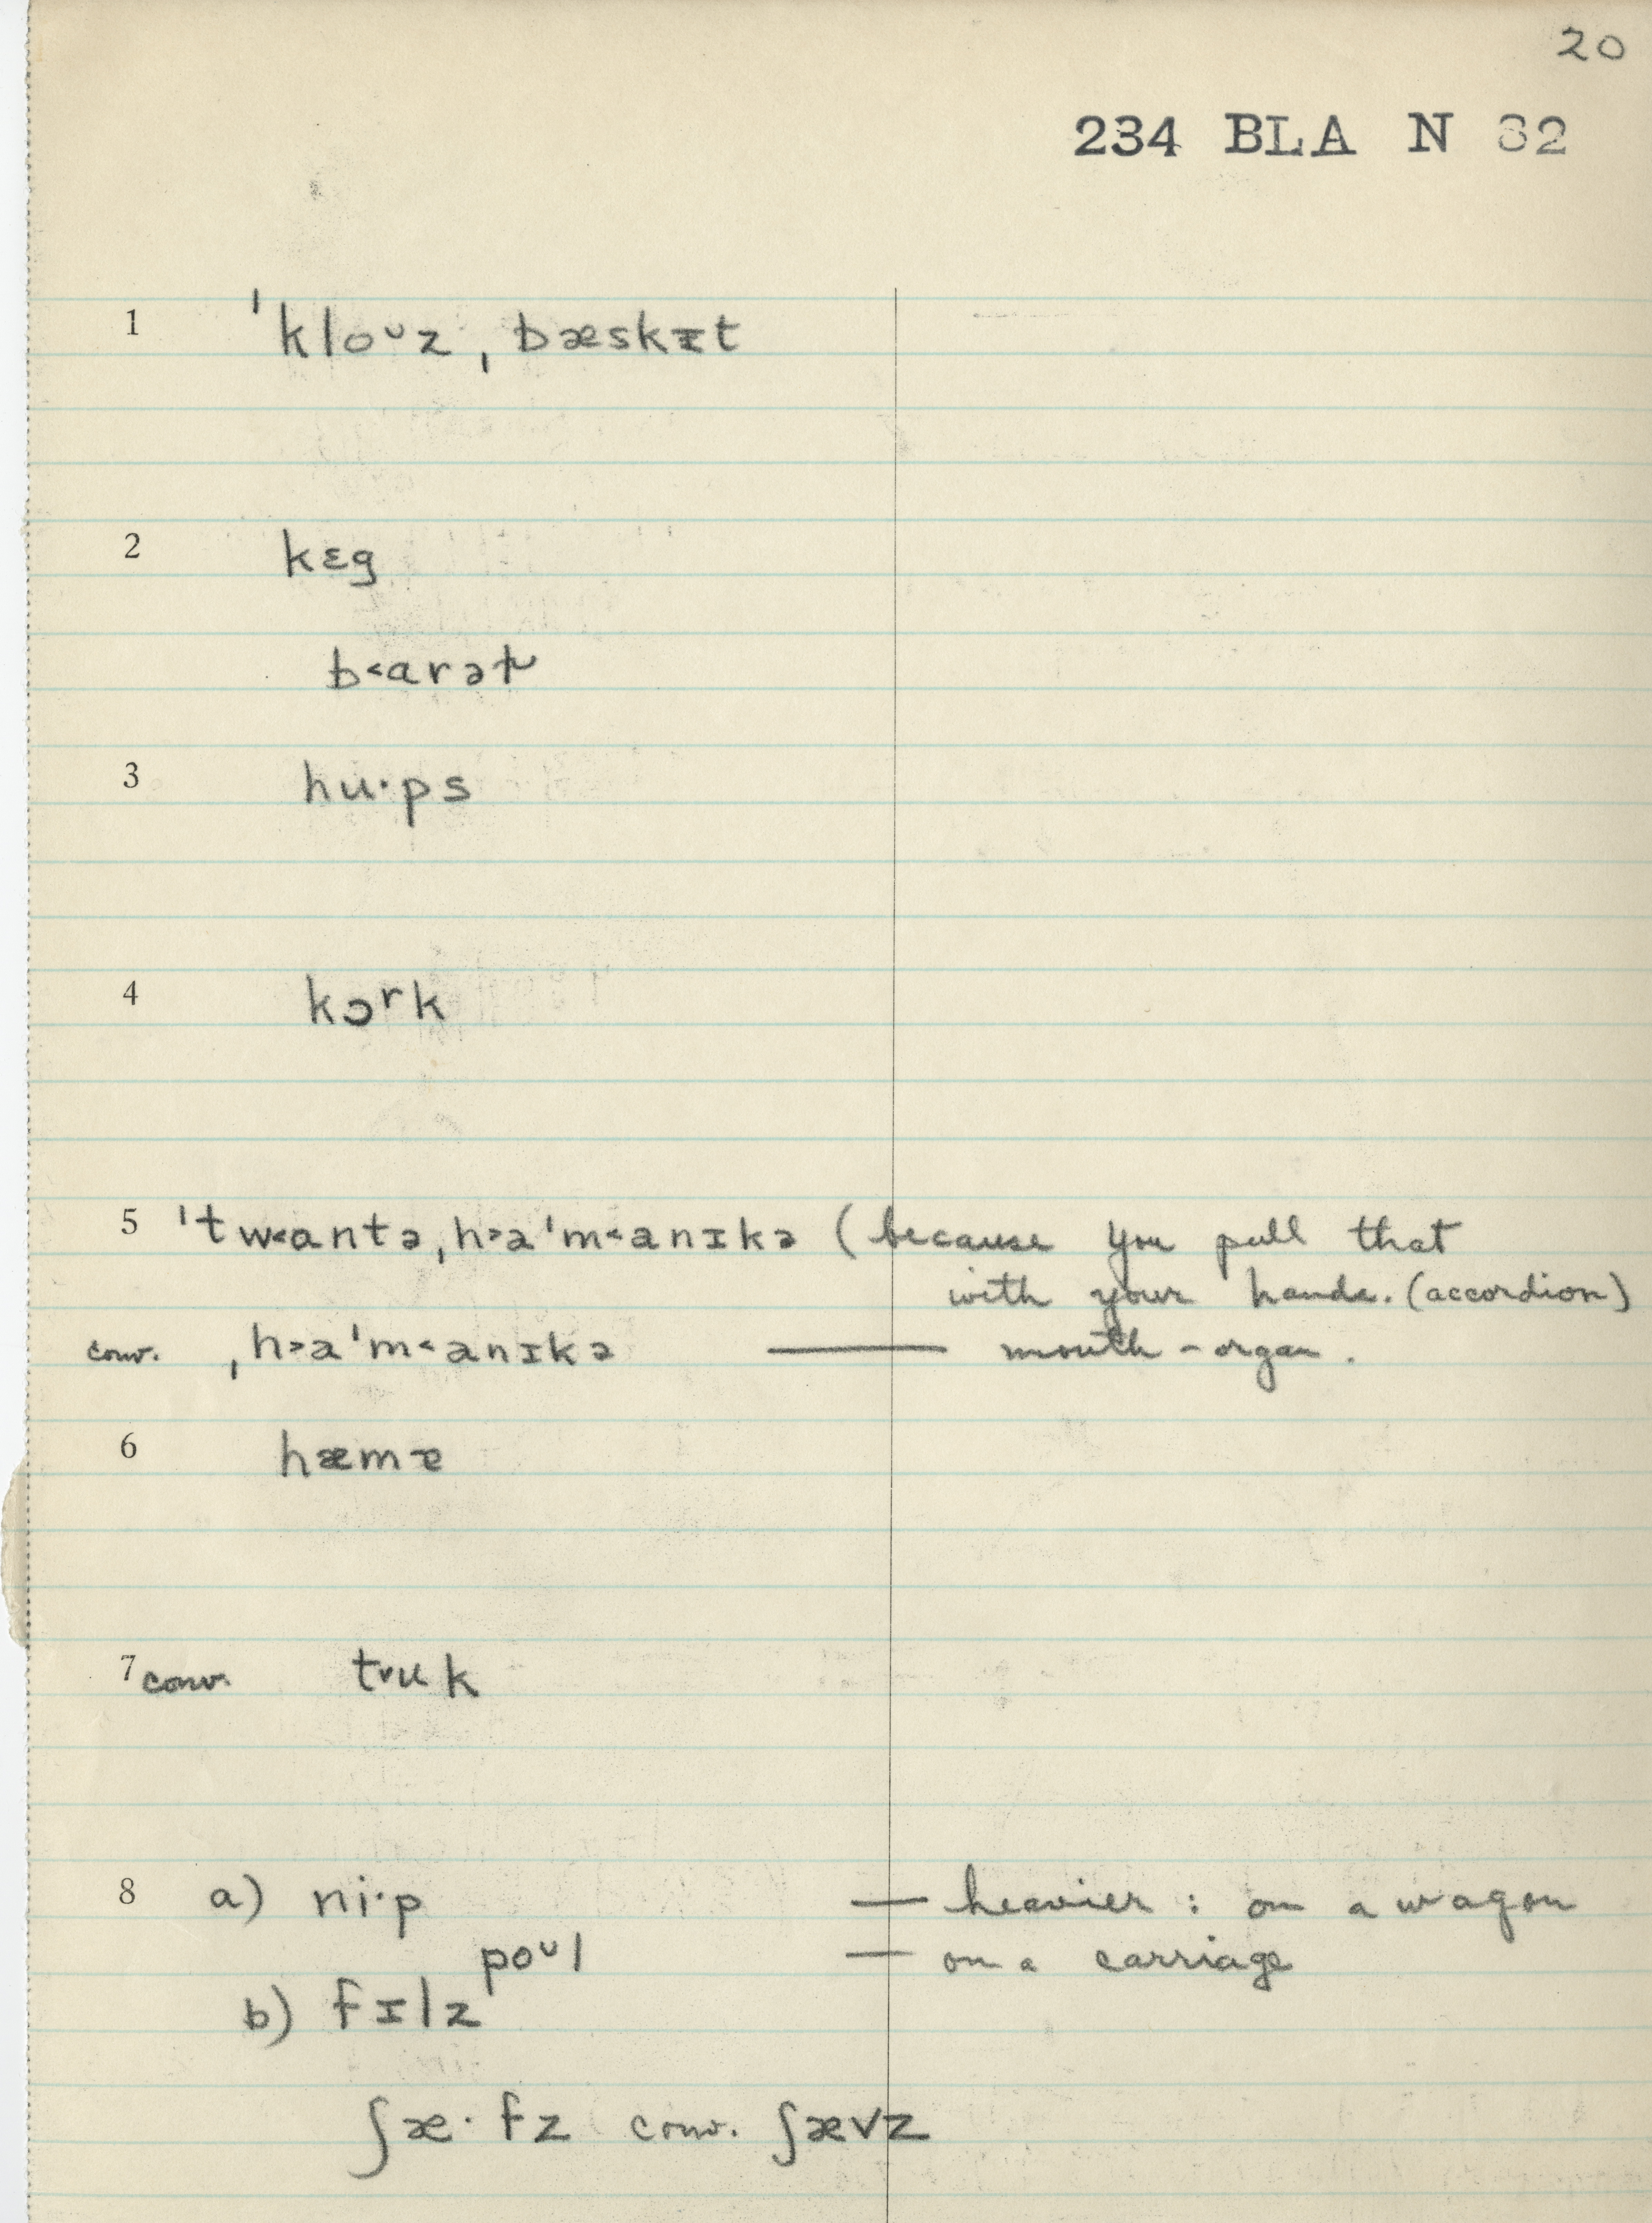 20
234 BLA N 32
1 ˈkloᴜz ˌbæskɪt
2 kɛg
b˂arəɫ
3 hu·ps
4 kɔʳk
5 ˈtw˂antə ˌh˃aˈm˂anɪkə (because you pull that
with your hands. (accordion)
conv. ˌh˃aˈm˂anɪkə — mouth-organ.
6 hæmɐ
7 conv. tᵛuk
8 a) ni·p — heavier : on a wagon
poᴜl — on a carriage
b) fɪlz
ʃæ·fz conv. ʃævz